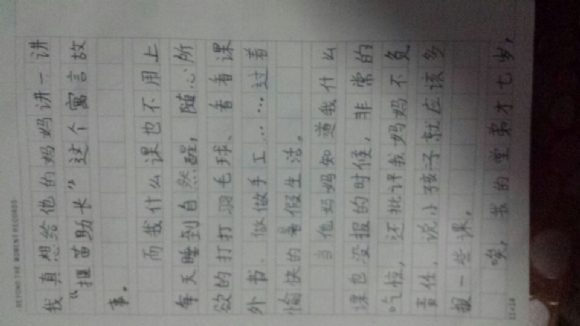 BEYOND THE MOMENT RECORDS
我真想给他的妈妈讲一讲
“揠苗助长”这个寓言故
事。
而我什么课也不用上
每天睡到自然醒，随心所
欲的打打羽毛球、看看课
外书、做做手工……过着
愉快的暑假生活。
当他妈妈知道我什么
课也没报的时候，非常的
吃惊，还批评我妈妈不负
责任，说小孩子就应该多
报一些课。
唉，我的堂弟才七岁，